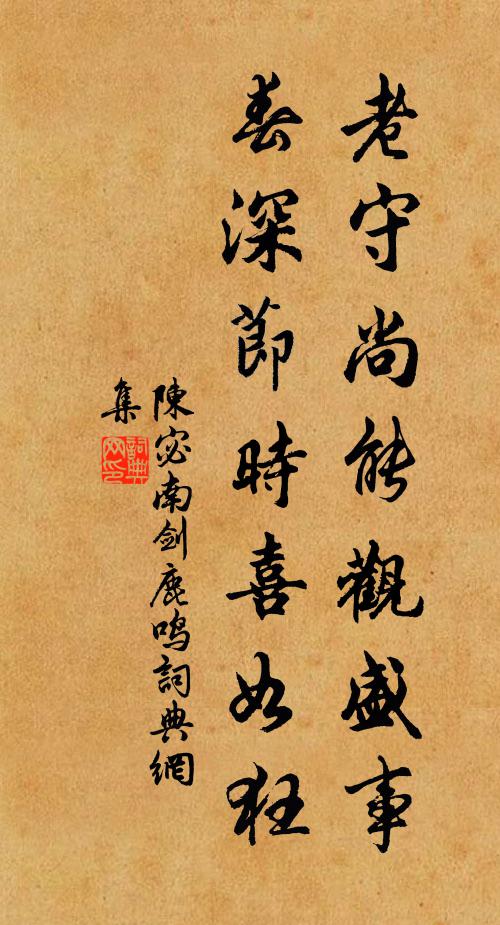 老守尚能觀盛事
春深節時喜如狂
陳宓南劍鹿鳴詞典網
集
詞典網印